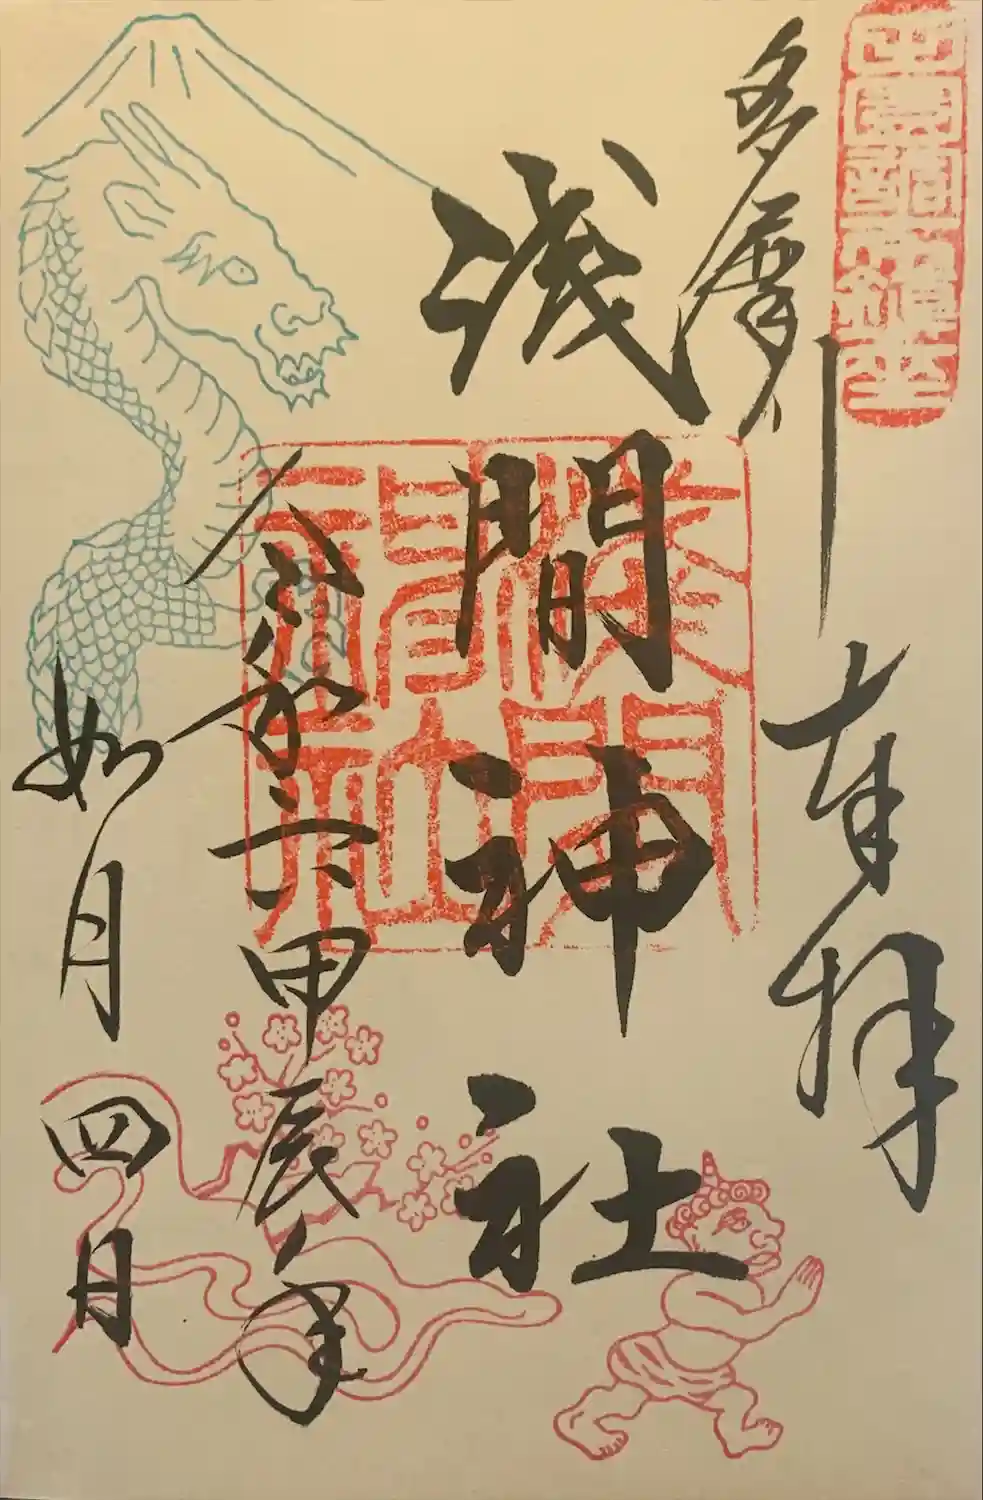 多摩川
奉拝
浅間神社
令和六甲辰年
如月四日
浅間神社